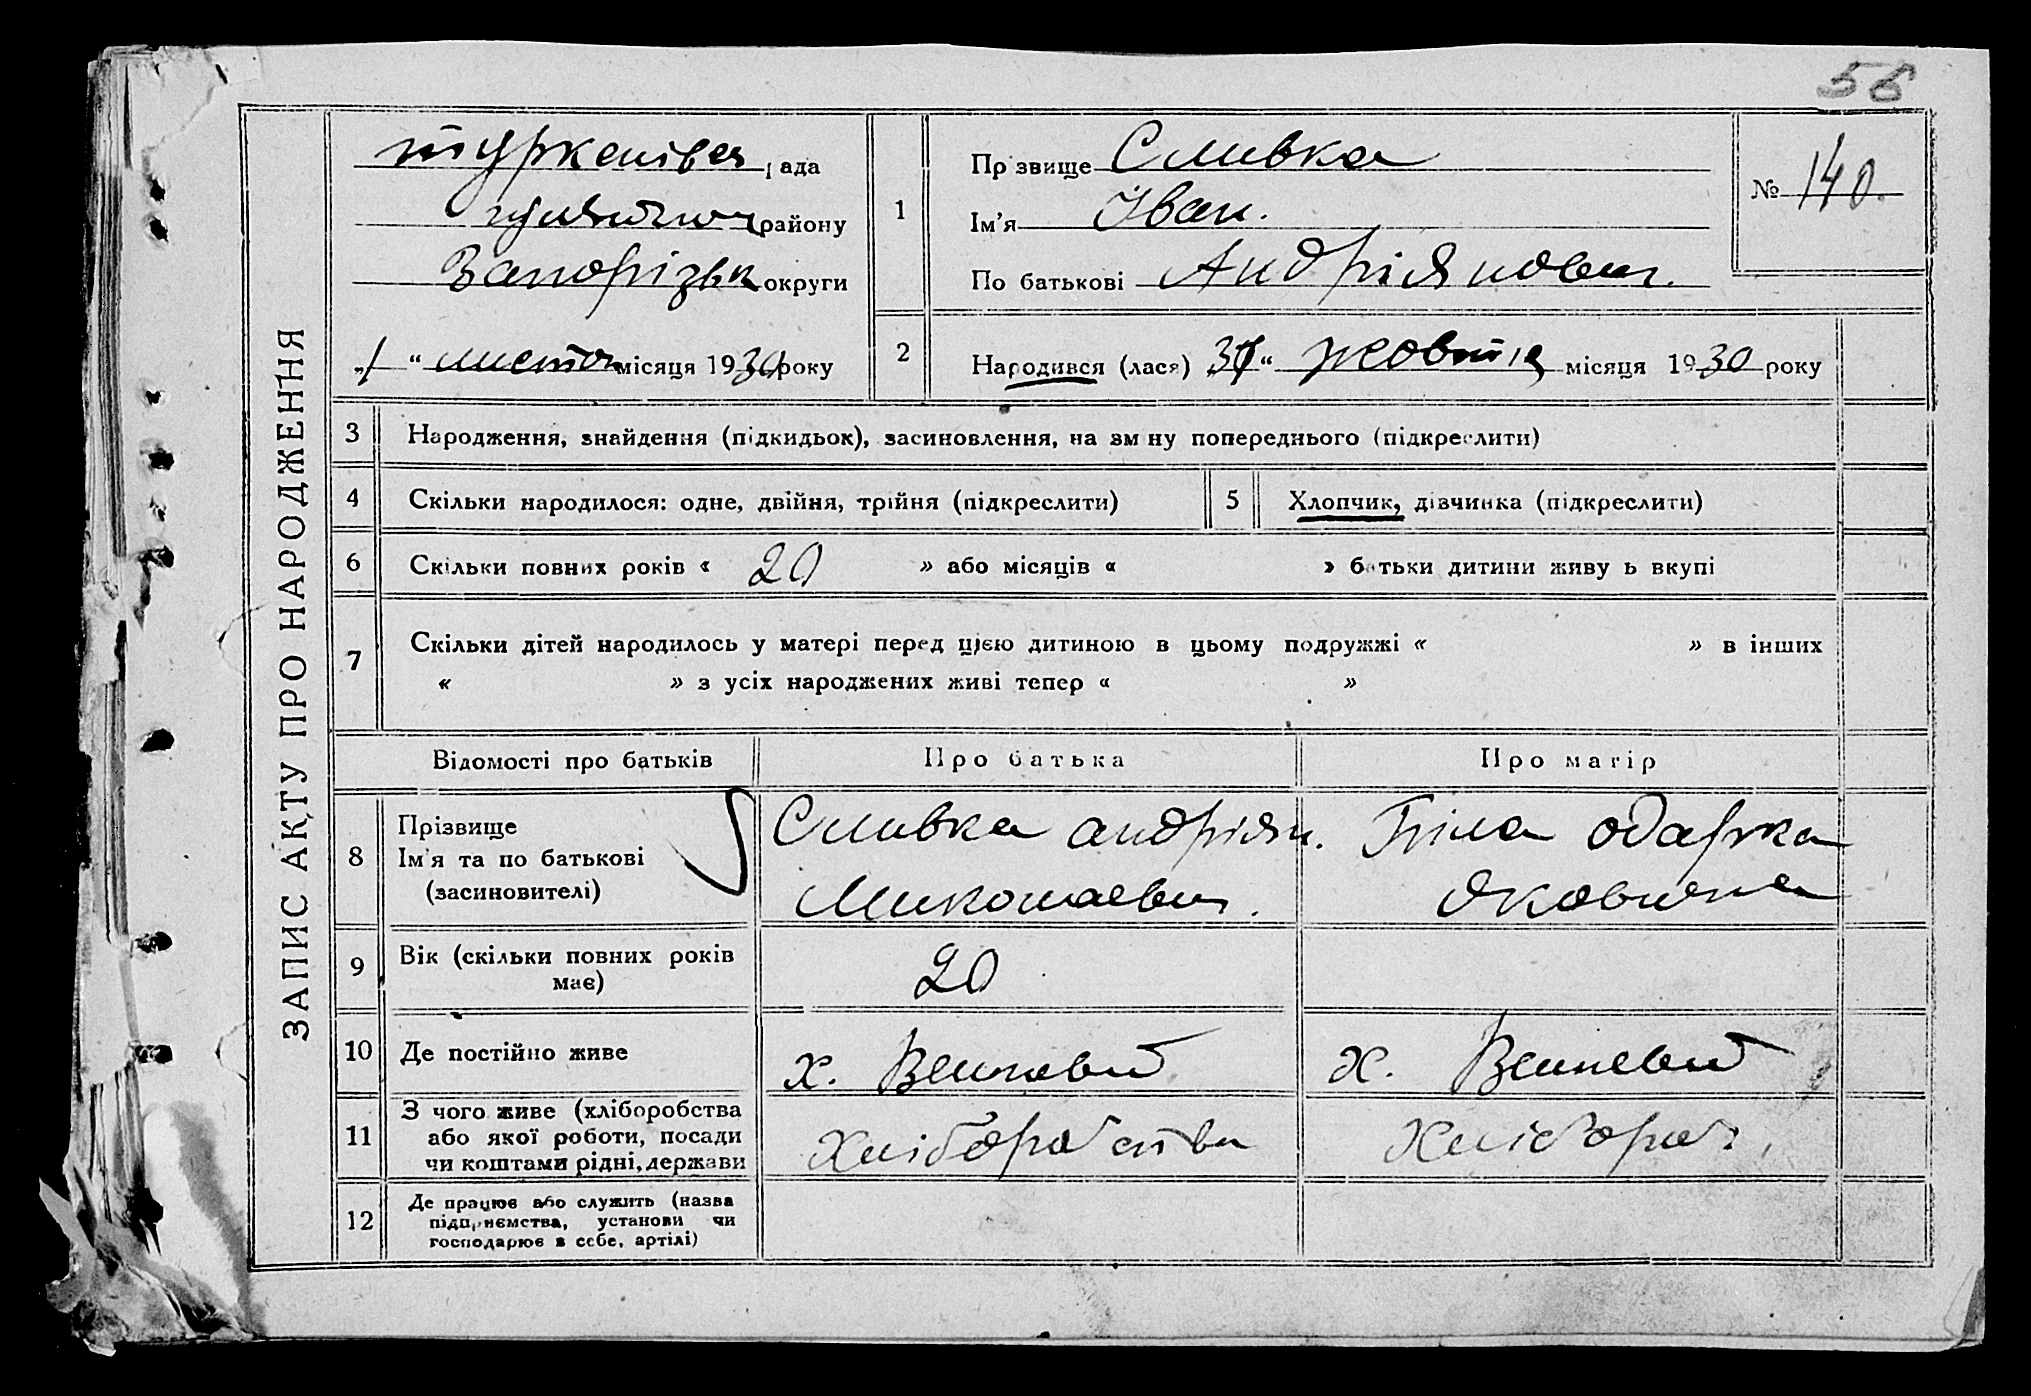 56
ЗАПИС АКТУ ПРО НАРОДЖЕННЯ
рада
району
Запорізьк округи
„1“ листоп місяця 1930 року
1
Прізвище Сливка
Ім'я Іван.
По батькові Андріянович.
№ 140.
2
Народився (лася) „31“ жовтня місяця 1930 року
3 Народження, знайдення (підкидьок), засиновлення, на зміну попереднього (підкреслити)
4 Скільки народилося: одне, двійня, трійня (підкреслити) 5 Хлопчик, дівчинка (підкреслити)
6 Скільки повних років « 20 » або місяців « » батьки дитини живуть вкупі
7 Скільки дітей народилось у матері перед цією дитиною в цьому подружжі « » в інших
« » з усіх народжених живі тепер « »
Відомості про батьків Про батька Про матір
8 Прізвище
Ім'я та по батькові
(засиновителі)
Сливка андріян.
Миколаєвич.
одарка
Яковлена
9 Вік (скільки повних років
має)
20
10 Де постійно живе х. х.
11 З чого живе (хліборобства
або якої роботи, посади
чи коштами рідні, держави
Хліборобства Хлібороб,
12 Де працює або служить (назва
підприємства, установи чи
господарює в себе, артілі)